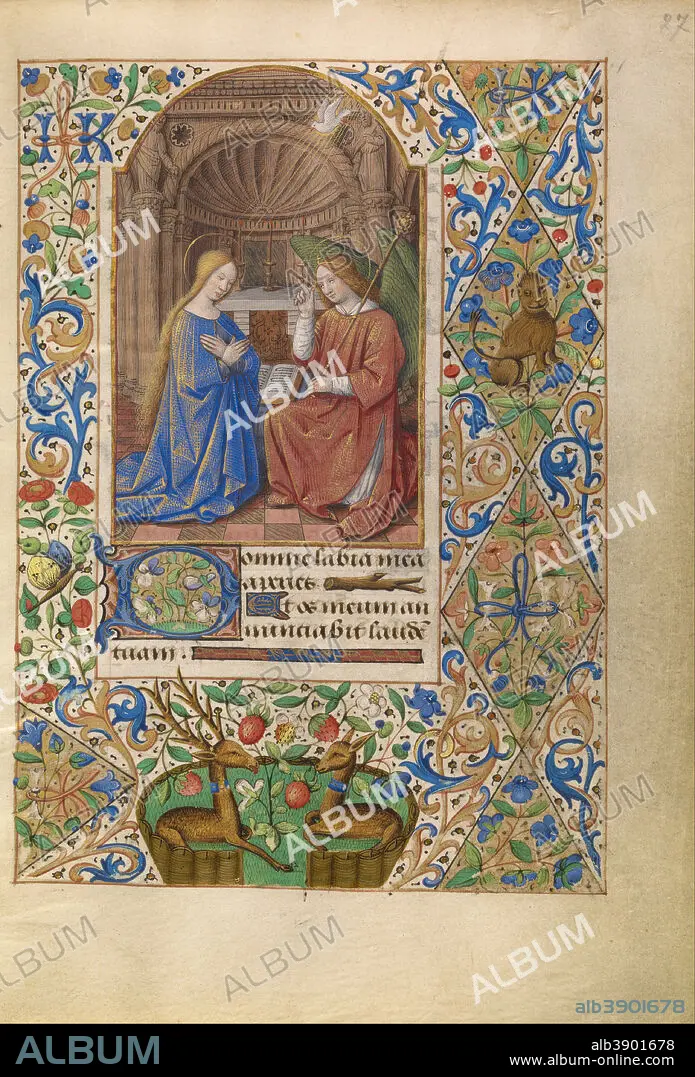 27
Domine labia mea
aperies
Et os meum an
nunciabit laudē
tuam .
ALBUM
alb3901678
ALBUM
alb3901678
www.album-online.com